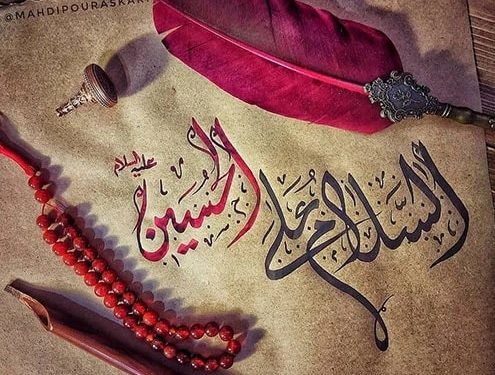 @MAHDIPOURASKARI
السَّلامُ عَلَی الحُسَین
علیه السلام